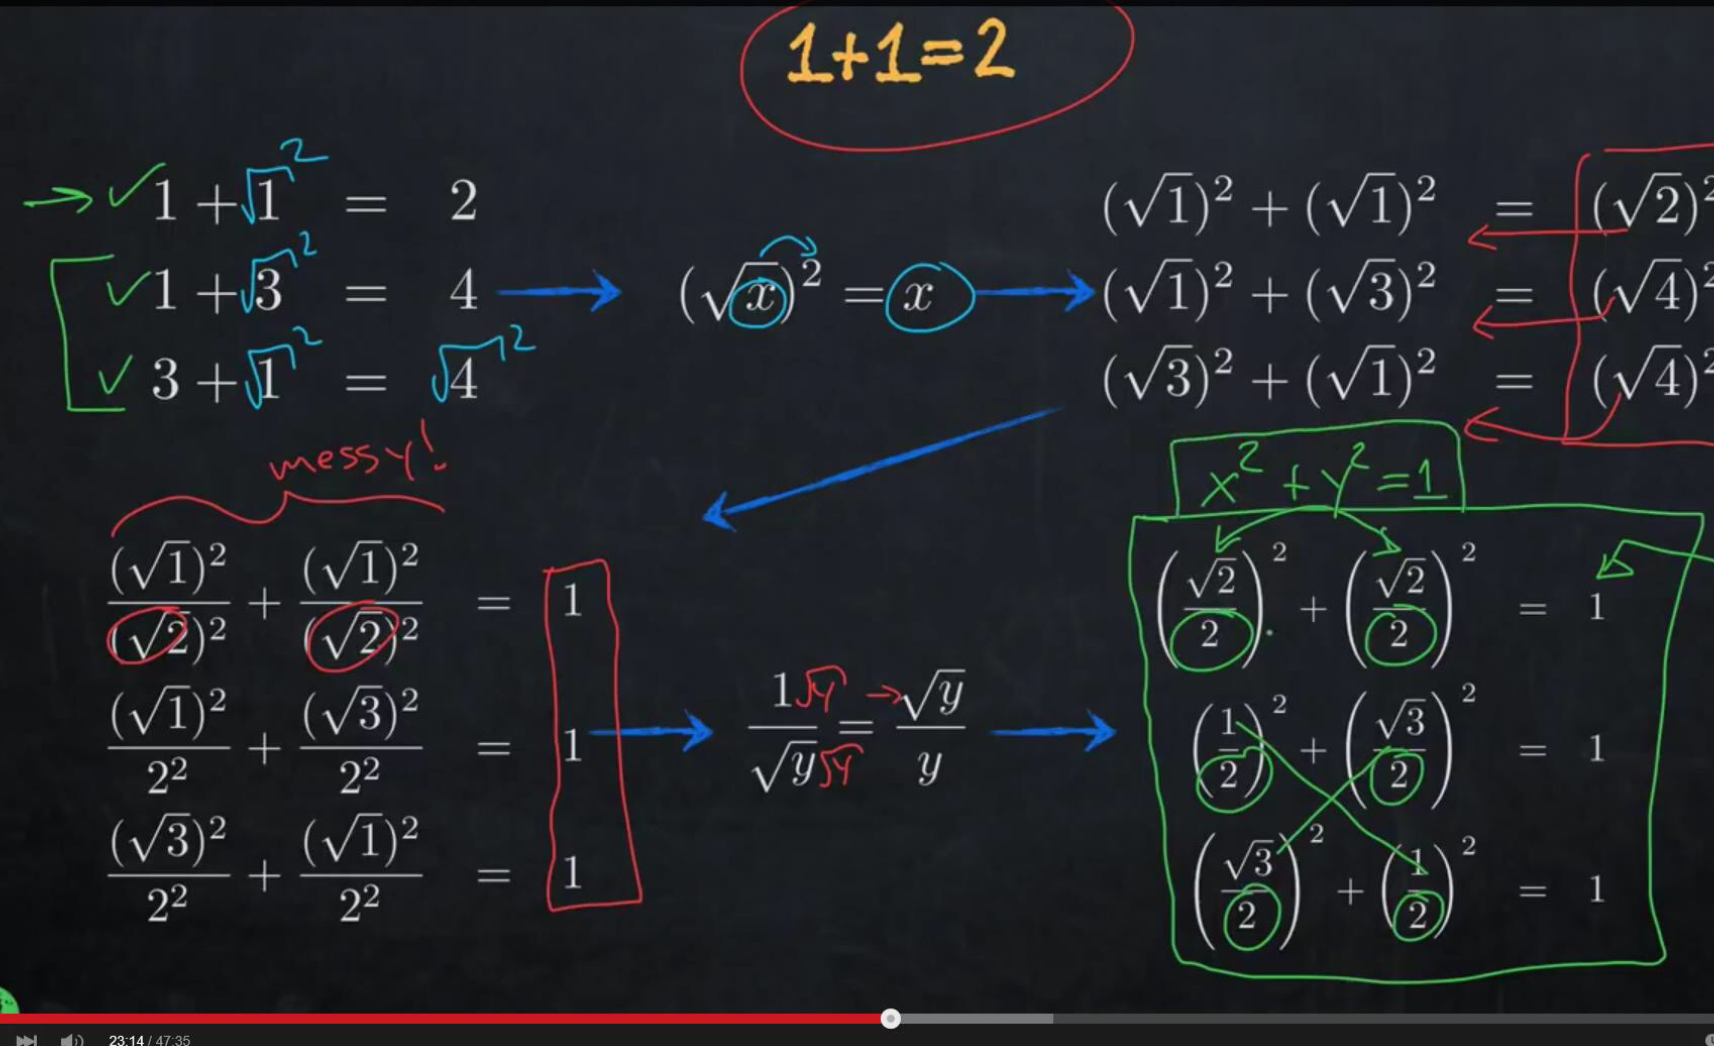 1+1=2
→ ✓ 1 + √1² = 2
✓ 1 + √3² = 4
✓ 3 + √1² = √4²
(√x)² = x
(√1)² + (√1)² = (√2)²
(√1)² + (√3)² = (√4)²
(√3)² + (√1)² = (√4)²
messy!
(√1)²/(√2)² + (√1)²/(√2)² = 1
(√1)²/2² + (√3)²/2² = 1
(√3)²/2² + (√1)²/2² = 1
1√y/√y√y = → √y/y
x² + y² = 1
(√2/2)² + (√2/2)² = 1
(1/2)² + (√3/2)² = 1
(√3/2)² + (1/2)² = 1
23:14 / 47:35